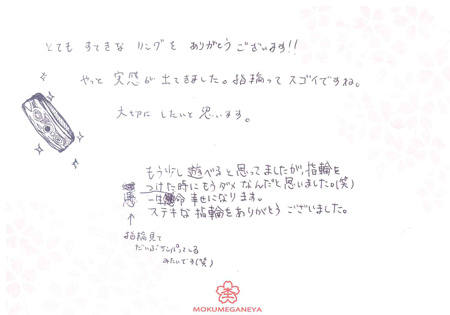 とても すてきな リングを ありがとう ございます!!
やっと 実感が 出てきました。指輪って スゴイですね。
大切に したいと 思います。
もう少し 遊べると 思ってましたが、指輪を
つけた時に もうダメ なんだと 思いました。(笑)
一生懸命 幸せになります。
ステキな 指輪を ありがとう ございました。
↑
指輪見て
だいぶテンパっている
みたいです(笑)
MOKUMEGANEYA